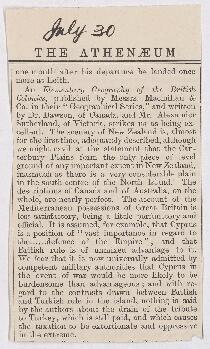 July 30
THE ATHENÆUM
one month after his departure he landed once
more at Leith.
An Elementary Geography of the British
Colonies, published by Messrs. Macmillan &
Co. in their "Geographical Series," and written
by Dr. Dawson, of Canada, and Mr. Alexander
Sutherland, of Victoria, strikes us as being ex-
cellent. The scenery of New Zealand is, almost
for the first time, adequately described, although
we might cavil at the statement that the Can-
terbury Plains form the only piece of level
ground of any important extent in New Zealand,
inasmuch as there is a very considerable plain
in the south centre of the North Island. The
descriptions of Canada and of Australia, on the
whole, are nearly perfect. The account of the
Mediterranean possessions of Great Britain is
less satisfactory, being a little perfunctory and
official. It is assumed, for example, that Cyprus
is a position of "vast importance in regard to
the......defence of the Empire"; and that
British rule is of unmixed advantage to it.
We fear that it is now universally admitted by
competent military authorities that Cyprus in
the event of war would be more likely to be
burdensome than advantageous; and with re-
gard to the contrasts drawn between British
and Turkish rule in the island, nothing is said
by the authors about the drain of the tribute
to Turkey, which is still paid, and which causes
the taxation to be extortionate and oppressive
in the extreme.